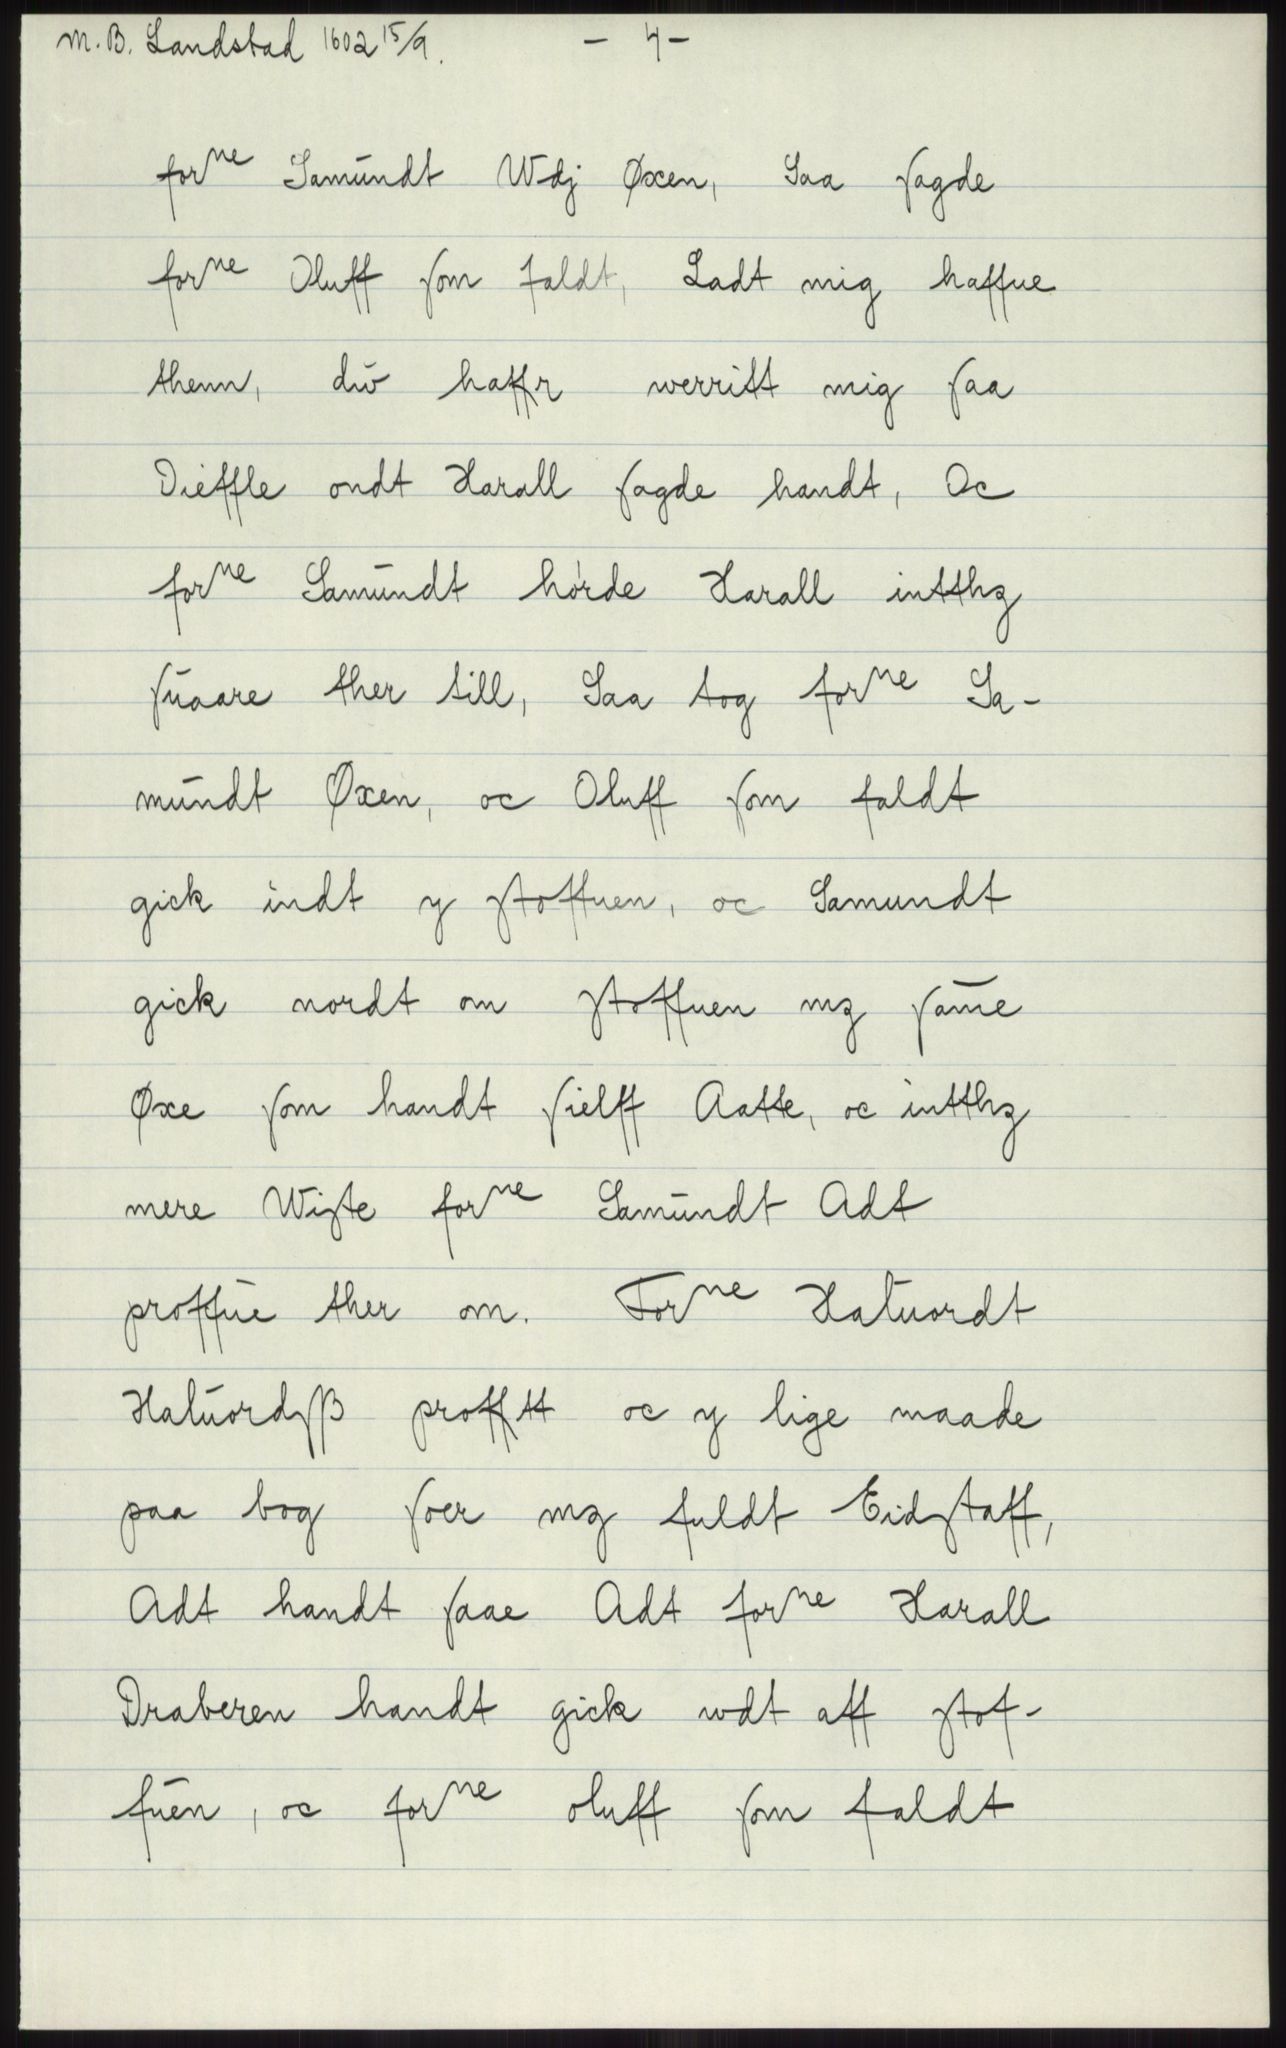 M. B. Landstad 1602 15/9. - 4 -
forne Samundt Wdj Øxen, Saa sagde
forne Oluff som faldt, Ladt mig haffue
thenn, du haffr werritt mig saa
Dieffle ondt Harall sagde handt, Oc
forne Samundt hørde Harall intthz
suaare ther till, Saa tog forne Sa-
mundt Øxen, oc Oluff som faldt
gick indt y stoffuen, oc Samundt
gick nordt om stoffuen mz same
Øxe som handt sielff Aatte, oc intthz
mere Wiste forne Samundt Adt
proffue ther om. Forne Haluordt
Haluordsß profftt oc y lige maade
paa bog soer mz fuldt Eidstaff,
Adt handt saae Adt forne Harall
Draberen handt gick wdt aff stof-
fuen, oc forne oluff som faldt